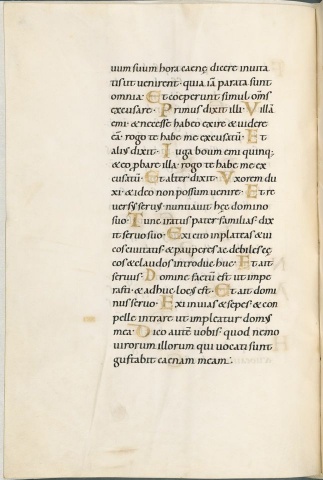 uum suum hora caenę dicere inuita
tis ut uenirent· quia iā parata sunt
omnia· Et coeperunt simul om̄s
excusare· Primus dixit illi· Villā
emi· & necesse habeo exire & uidere
eā· rogo te habe me excusatū· Et
alius dixit· Iuga boum emi quinq;
& eo ꝓbare illa· rogo te habe me ex
cusatū· Et alter dixit· Vxorem du
xi· & ideo non possum uenire· Et re
uersus seruus nuntiauit hęc domino
suo· Tunc iratus pater familias· dix
it seruo suo· Exi cito in plateas & ui
cos ciuitatis· & pauperes ac debiles cę
cos & claudos introduc huc· Et ait
seruus· Domine factū est ut impe
rasti· & adhuc locus est· Et ait domi
nus seruo· Exi in uias & sepes· & con
pelle intrare ut impleatur domus
mea· Dico autē uobis· quod nemo
uirorum illorum qui uocati sunt
gustabit caenam meam·